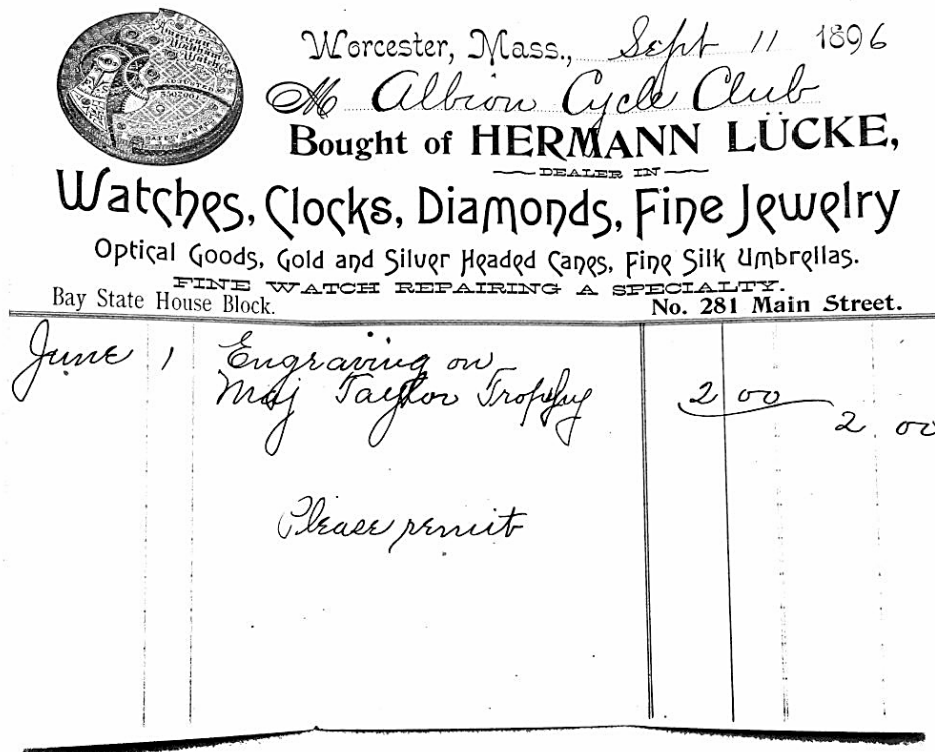 American Waltham Watch Co
ADJUSTED
SAFETY BARREL
Worcester, Mass., Sept 11 1896
M Albion Cycle Club
Bought of HERMANN LÜCKE,
DEALER IN
Watches, Clocks, Diamonds, Fine Jewelry
Optical Goods, Gold and Silver Headed Canes, Fine Silk Umbrellas.
FINE WATCH REPAIRING A SPECIALTY.
Bay State House Block. No. 281 Main Street.
June 1 Engraving on
Maj Taylor Trophy 2 00
2 00
Please remit